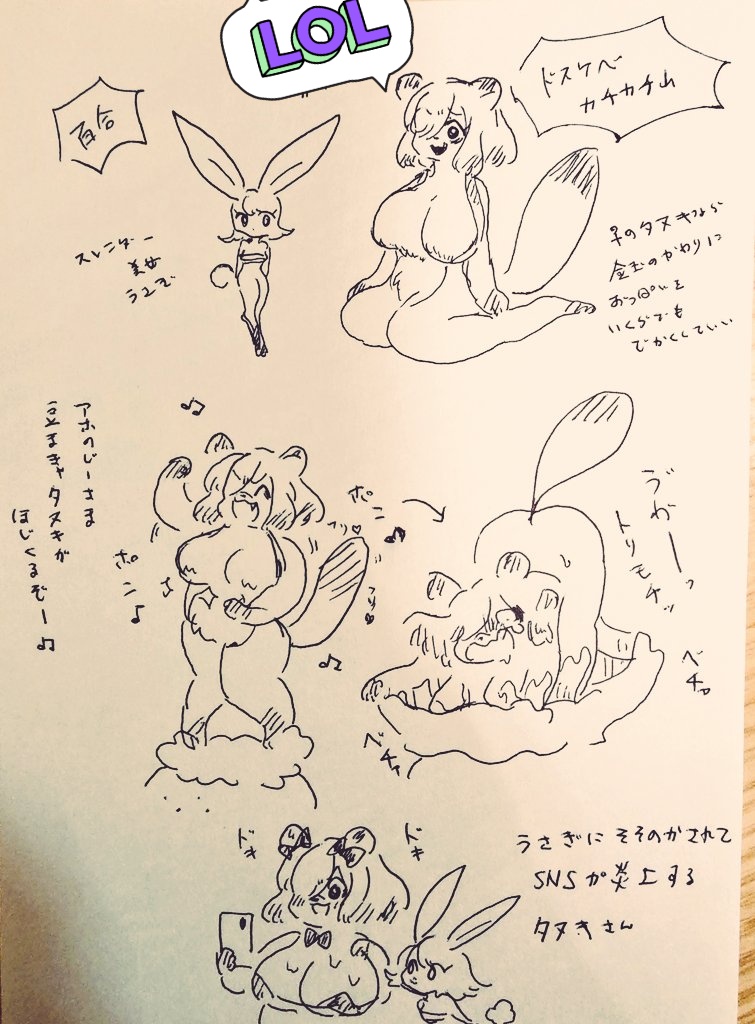 LOL
ドスケベ
カチカチ山
百合
スレンダー
美女
うさぎ
メスのタヌキなら
金玉のかわりに
おっぱいを
いくらでも
でかくしていい
アホのじーさま
豆まきゃタヌキが
ほじくるぞー♪
♫
ポン♪
ポン♫
フリ♡
フリ♡
♫
うわーっ
トリモチッ
ベチョ
ベチョ
ドキ
ドキ
うさぎにそそのかされて
SNSが炎上する
タヌキさん